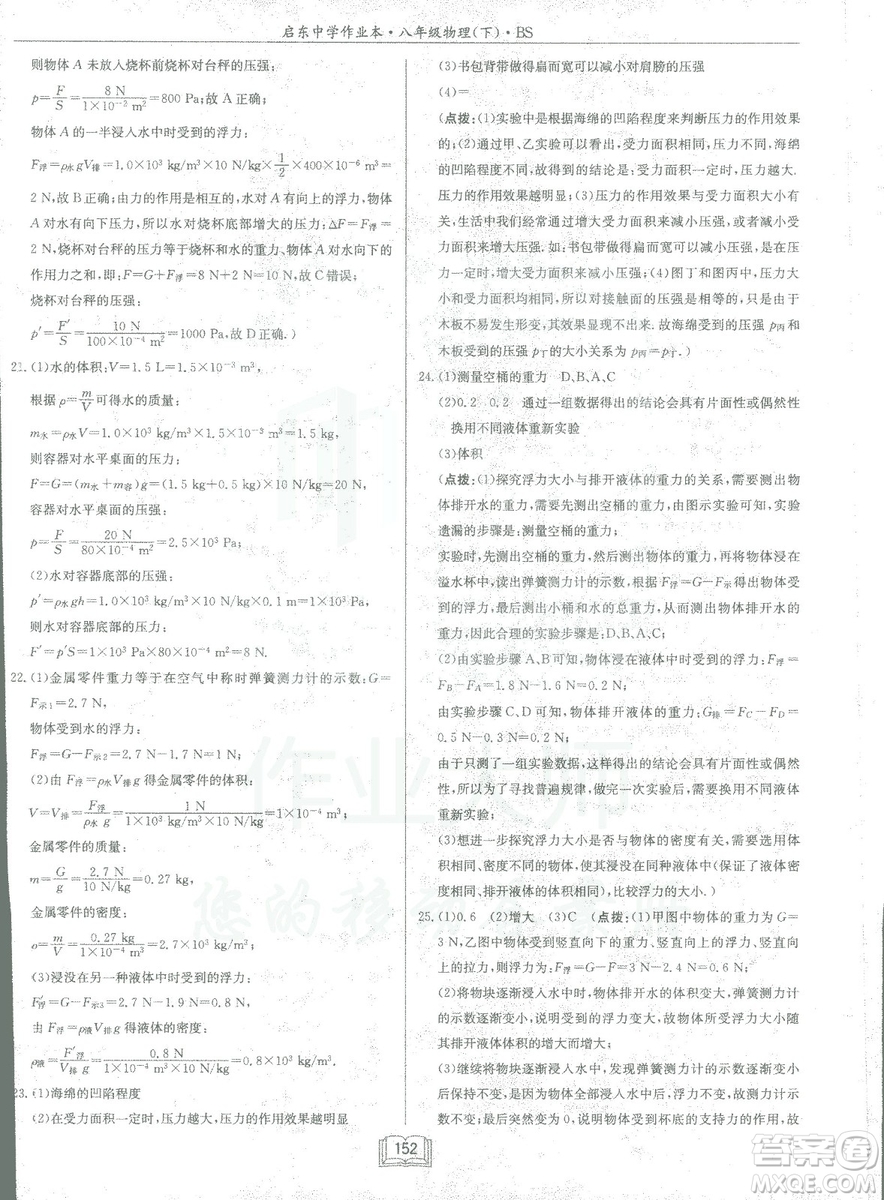 启东中学作业本·八年级物理(下)·BS
则物体 A 未放入烧杯前烧杯对台秤的压强:
p=F/S=8 N/(1×10⁻² m²)=800 Pa;故 A 正确;
物体 A 的一半浸入水中时受到的浮力:
F浮=ρ水gV排=1.0×10³ kg/m³×10 N/kg×1/2×400×10⁻⁶ m³=
2 N,故 B 正确;由力的作用是相互的,水对 A 有向上的浮力,物体
A 对水有向下压力,所以水对烧杯底部增大的压力:ΔF=F浮=
2 N,烧杯对台秤的压力等于烧杯和水的重力、物体 A 对水向下的
作用力之和,即:F=G+F浮=8 N+2 N=10 N,故 C 错误;
烧杯对台秤的压强:
p′=F′/S=10 N/(100×10⁻⁴ m²)=1000 Pa,故 D 正确.)
21. (1)水的体积:V=1.5 L=1.5×10⁻³ m³,
根据 ρ=m/V可得水的质量:
m水=ρ水V=1.0×10³ kg/m³×1.5×10⁻³ m³=1.5 kg,
则容器对水平桌面的压力:
F=G=(m水+m容)g=(1.5 kg+0.5 kg)×10 N/kg=20 N,
容器对水平桌面的压强:
p=F/S=20 N/(80×10⁻⁴ m²)=2.5×10³ Pa,
(2)水对容器底部的压强:
p′=ρ水gh=1.0×10³ kg/m³×10 N/kg×0.1 m=1×10³ Pa,
则水对容器底部的压力:
F′=p′S=1×10³ Pa×80×10⁻⁴ m²=8 N.
22. (1)金属零件重力等于在空气中称时弹簧测力计的示数:G=
F示1=2.7 N,
物体受到水的浮力:
F浮=G−F示2=2.7 N−1.7 N=1 N.
(2)由 F浮=ρ水V排g 得金属零件的体积:
V=V排=F浮/(ρ水g)=1 N/(1×10³ kg/m³×10 N/kg)=1×10⁻⁴ m³;
金属零件的质量:
m=G/g=2.7 N/(10 N/kg)=0.27 kg,
金属零件的密度:
ρ=m/V=0.27 kg/(1×10⁻⁴ m³)=2.7×10³ kg/m³,
(3)浸没在另一种液体中时受到的浮力:
F′浮=G−F示3=2.7 N−1.9 N=0.8 N
由 F浮=ρ液V排g 得液体的密度:
ρ液=F′浮/(V排g)=0.8 N/(1×10⁻⁴ m³×10 N/kg)=0.8×10³ kg/m³.
23. (1)海绵的凹陷程度
(2)在受力面积一定时,压力越大,压力的作用效果越明显
(3)书包背带做得扁而宽可以减小对肩膀的压强
(4)=
(点拨:(1)实验中是根据海绵的凹陷程度来判断压力的作用效果
的;(2)通过甲、乙实验可以看出,受力面积相同,压力不同,海绵
的凹陷程度不同,故得到的结论是:受力面积一定时,压力越大.
压力的作用效果越明显;(3)压力的作用效果与受力面积大小有
关,生活中我们经常通过增大受力面积来减小压强,或者减小受
力面积来增大压强.如:书包带做得扁而宽可以减小压强,是在压
力一定时,增大受力面积来减小压强;(4)图丁和图丙中,压力、受
力面积均相同,所以,对接触面的压强大小是相同的,只是由于
木板不易发生形变,其效果显现不出来.故海绵受到的压强 p丙和
木板受到的压强 p丁的大小关系为 p丙=p丁.)
24. (1)测量空桶的重力 D、B、A、C
(2)0.2 0.2 通过一组数据得出的结论会具有片面性或偶然性
换用不同液体重新实验
(3)体积
(点拨:(1)探究浮力大小与排开液体的重力的关系,需要测出物
体排开水的重力,需要先测出空桶的重力;由图示实验可知,实验
遗漏的步骤是:测量空桶的重力;
实验时,先测出空桶的重力,然后测出物体的重力,再将物体浸在
溢水杯中,读出弹簧测力计的示数,根据 F浮=G−F示求出物体受
到的浮力,最后测出小桶和水的总重力,从而测出物体排开水的
重力.因此合理的实验步骤是:D、B、A、C;
(2)由实验步骤 A、B 可知,物体浸在液体中时受到的浮力:
F浮=FB−FA=1.8 N−1.6 N=0.2 N;
由实验步骤 C、D 可知,物体排开液体的重力:G排=FC−FD=
0.5 N−0.3 N=0.2 N;
由于只测了一组实验数据,这样得出的结论会具有片面性或偶然
性,所以为了寻找普遍规律,做完一次实验后,要换用不同液体
重新实验;
(3)想进一步探究浮力大小是否与物体的密度有关,应使用密度
不同的物体进行实验,分别测出所受浮力大小(保证了液体密度
相同、排开液体的体积相同),比较浮力的大小.)
25. (1)0.6 (2)增大 (3)C (点拨:(1)甲图中物体的重力为 G=
3 N,乙图中物体受到竖直向下的重力、竖直向上的浮力、竖直向
上的拉力,物体受到的浮力:F浮=G−F拉=3 N−2.4 N=0.6 N;
(2)将物块逐渐浸入水中时,物体排开水的体积变大,弹簧测力计
的示数逐渐变小,说明浮力逐渐变大,说明浮力大小随
其排开液体体积的增大而增大;
(3)继续将物体逐渐浸入水中时,发现浮力不变,测力计示数
也不变,最后突然变小,说明物体受到杯底的支持力的作用,故
152
作业大师
答案圈
MXQE.COM